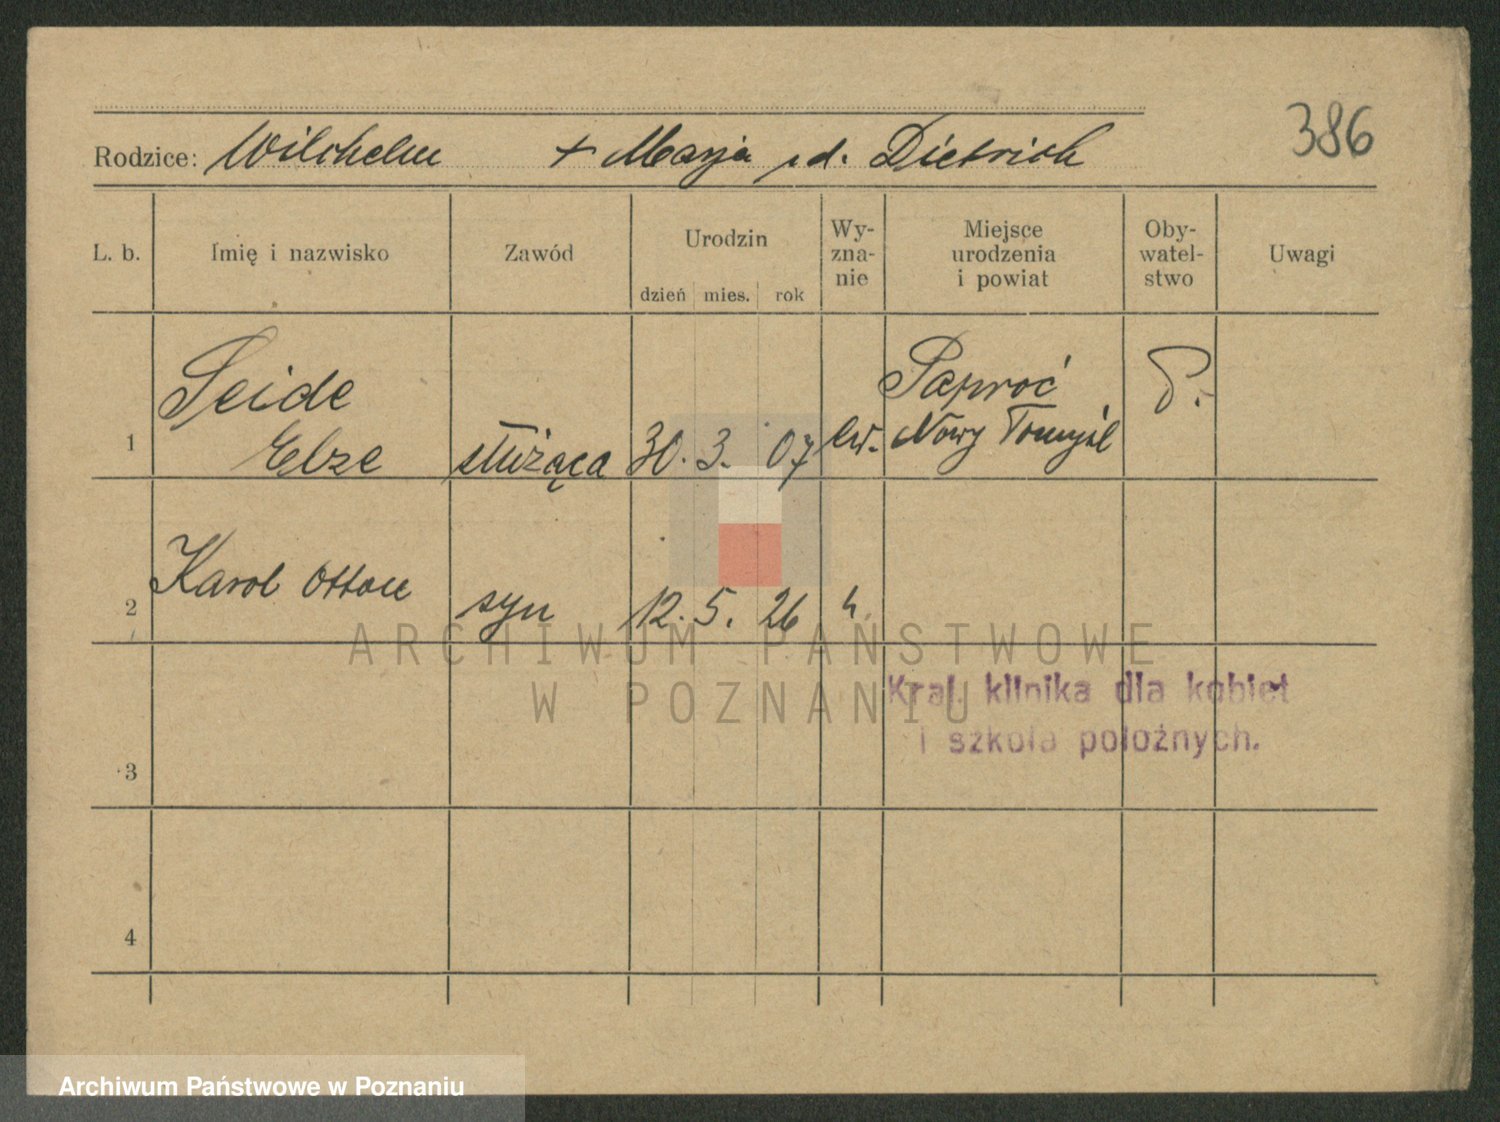 386
Rodzice: Wilchelm + Marja z d. Dietrich
L. b. Imię i nazwisko Zawód Urodzin dzień mies. rok Wy-zna-nie Miejsce urodzenia i powiat Oby-watel-stwo Uwagi
Seide Paproć P.
1 Elze służąca 30. 3. 07 ew. Nowy Tomyśl
2 Karol Otton syn 12. 5. 26 "
ARCHIWUM PAŃSTWOWE
W POZNANIU
Kraj. klinika dla kobiet
i szkoła położnych.
3
4
Archiwum Państwowe w Poznaniu